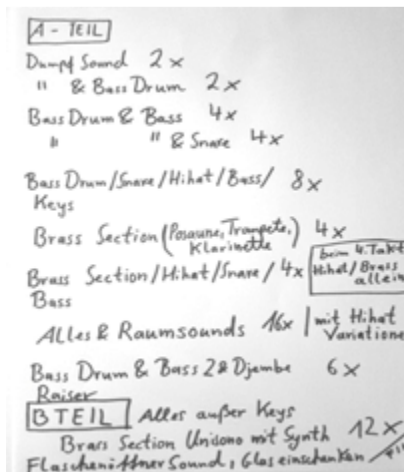 A - TEIL
Dumpf Sound 2x
" & Bass Drum 2x
Bass Drum & Bass 4x
" " & Snare 4x
Bass Drum/Snare/Hihat/Bass/ 8x
Keys
Brass Section (Posaune, Trompete, 4x
Klarinette
beim 4. Takt
Brass Section/Hihat/Snare/ 4x Hihat/Brass
Bass allein
Alles & Raumsounds 16x mit Hihat
Variatione
Bass Drum & Bass 2 & Djembe 6x
Raiser
B TEIL Alles außer Keys
Brass Section Unisono mit Synth 12x
Flaschenöffner Sound, Glas einschenken